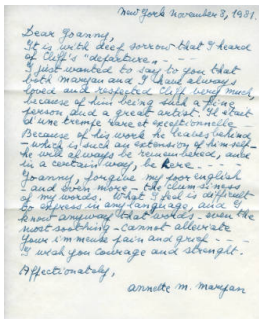 New York November 8, 1981.
Dear Joanny,
It is with deep sorrow that I heard
of Cliff's "departure. - - -
I just wanted to say to you that
both Maryan and I have always
loved and respected Cliff very much,
because of him being such a fine
person and a great artist. Il était
d'une trempe rare et exceptionnelle.
Because of his work he leaves behind
- which is such an extension of himself -
he will always be remembered, and
in a certain way, be here. - -
Joanny, forgive my poor english
- and even more - the clumsiness
of my words. What I feel is difficult
to express in any language, and I
know anyway that words - even the
most soothing - cannot alleviate
your immense pain and grief - - -
I wish you courage and strenght.
Affectionately,
Annette M. Maryan